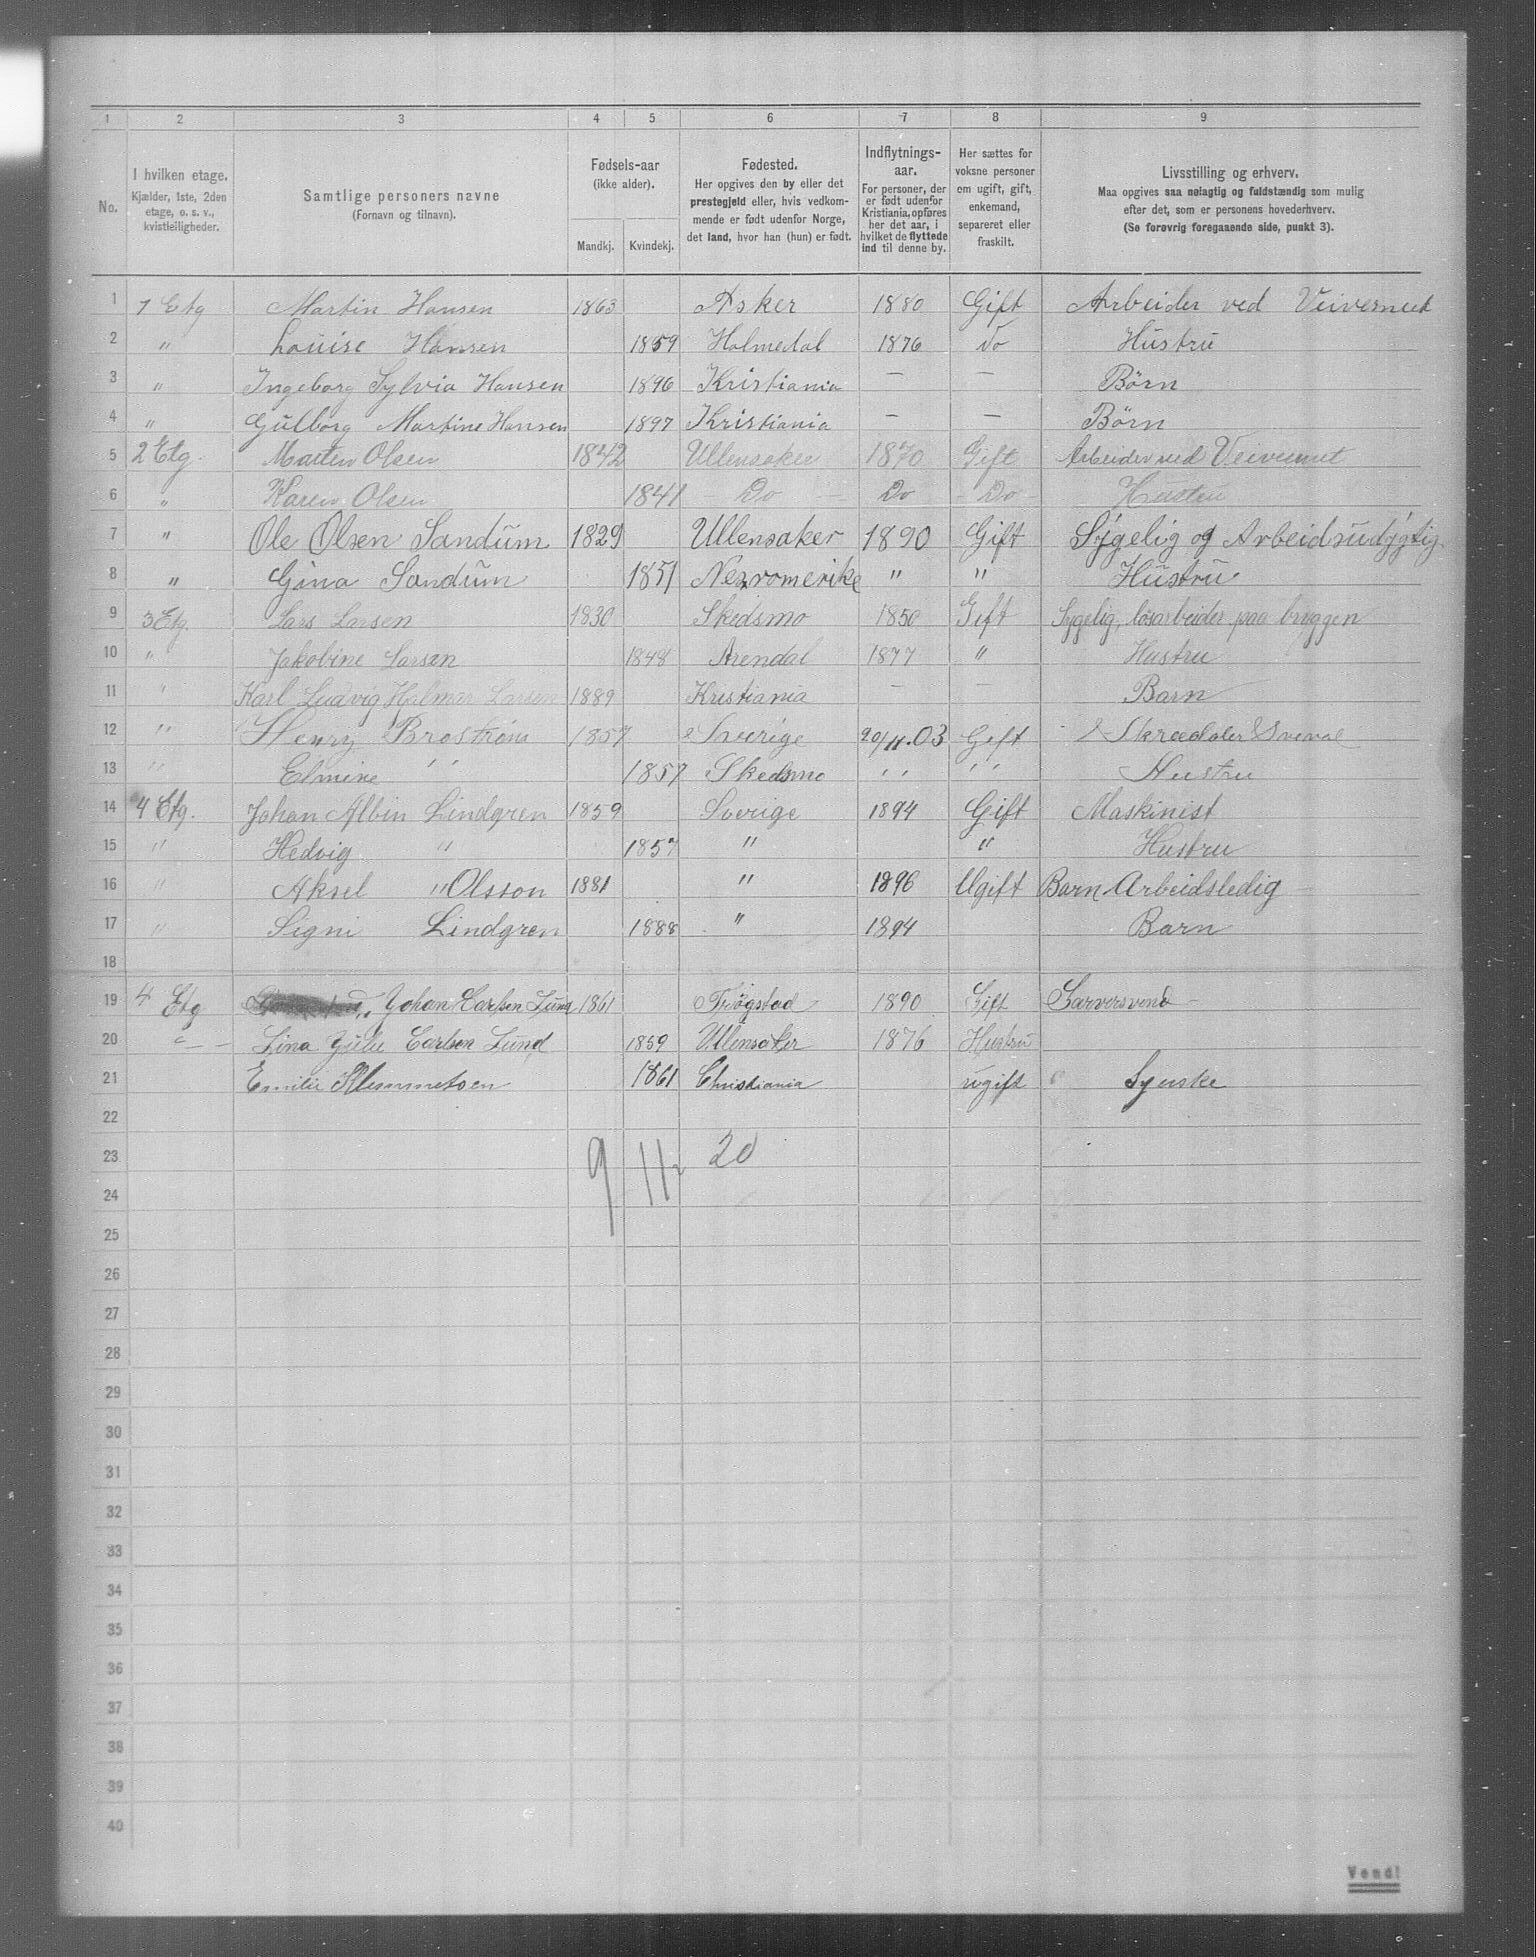 1 2 3 4 5 6 7 8 9
No.
I hvilken etage.
Kjælder, 1ste, 2den
etage, o. s. v.,
kvistleiligheder.
Samtlige personers navne
(Fornavn og tilnavn).
Fødsels-aar
(ikke alder).
Mandkj. Kvindekj.
Fødested.
Her opgives den by eller det
prestegjeld eller, hvis vedkom-
mende er født udenfor Norge,
det land, hvor han (hun) er født.
Indflytnings-
aar.
For personer, der
er født udenfor
Kristiania, opføres
her det aar, i
hvilket de flyttede
ind til denne by.
Her sættes for
voksne personer
om ugift, gift,
enkemand,
separeret eller
fraskilt.
Livsstilling og erhverv.
Maa opgives saa nøiagtig og fuldstændig som mulig
efter det, som er personens hovederhverv.
(Se forøvrig foregaaende side, punkt 3).
1 1 Etg Martin Hansen 1863 Asker 1880 Gift Arbeider ved Veivesnet
2 " Louise Hansen 1859 Holmedal 1876 Do Hustru
3 " Ingeborg Sylvia Hansen 1896 Kristiania — — Børn
4 " Gulborg Martine Hansen 1897 Kristiania — — Børn
5 2 Etg. Marten Olsen 1842 Ullensaker 1870 Gift Arbeider ved
6 " Karen Olsen 1841 Do Do Do Hustru
7 " Ole Olsen Sandum 1829 Ullensaker 1890 Gift Sygelig og Arbeidsudygtig
8 " Gina Sandum 1851 Nesromerike " " Hustru
9 3 Etg. Lars Larsen 1830 Skedsmo 1850 Gift Sygelig, løsarbeider paa bryggen
10 " Jakobine Larsen 1848 Arendal 1877 " Hustru
11 " Karl Ludvig Hilmar Larsen 1889 Kristiania — — Barn
12 " Henry Brostrøm 1857 Sverige 20/11.03 Gift
13 " Elmine " 1857 Skedsmo " " Hustru
14 4 Etg. Johan Albin Lindgren 1859 Sverige 1894 Gift Maskinist
15 " Hedvig " 1857 " " Hustru
16 " Aksel " Olsson 1881 " 1896 Ugift Barn Arbeidsledig
17 " Signi Lindgren 1888 " 1894 Barn
18
19 4 Etg Johan Carlsen Lund 1861 Trøgstad 1890 Gift Garversvend
20 — " — Lina Julie Carlsen Lund 1859 Ullensaker 1876 Hustru
21 Emilie Klemmetsen 1861 Christiania ugift Syerske
22
23 9 11 20
24
25
26
27
28
29
30
31
32
33
34
35
36
37
38
39
40
Vend!